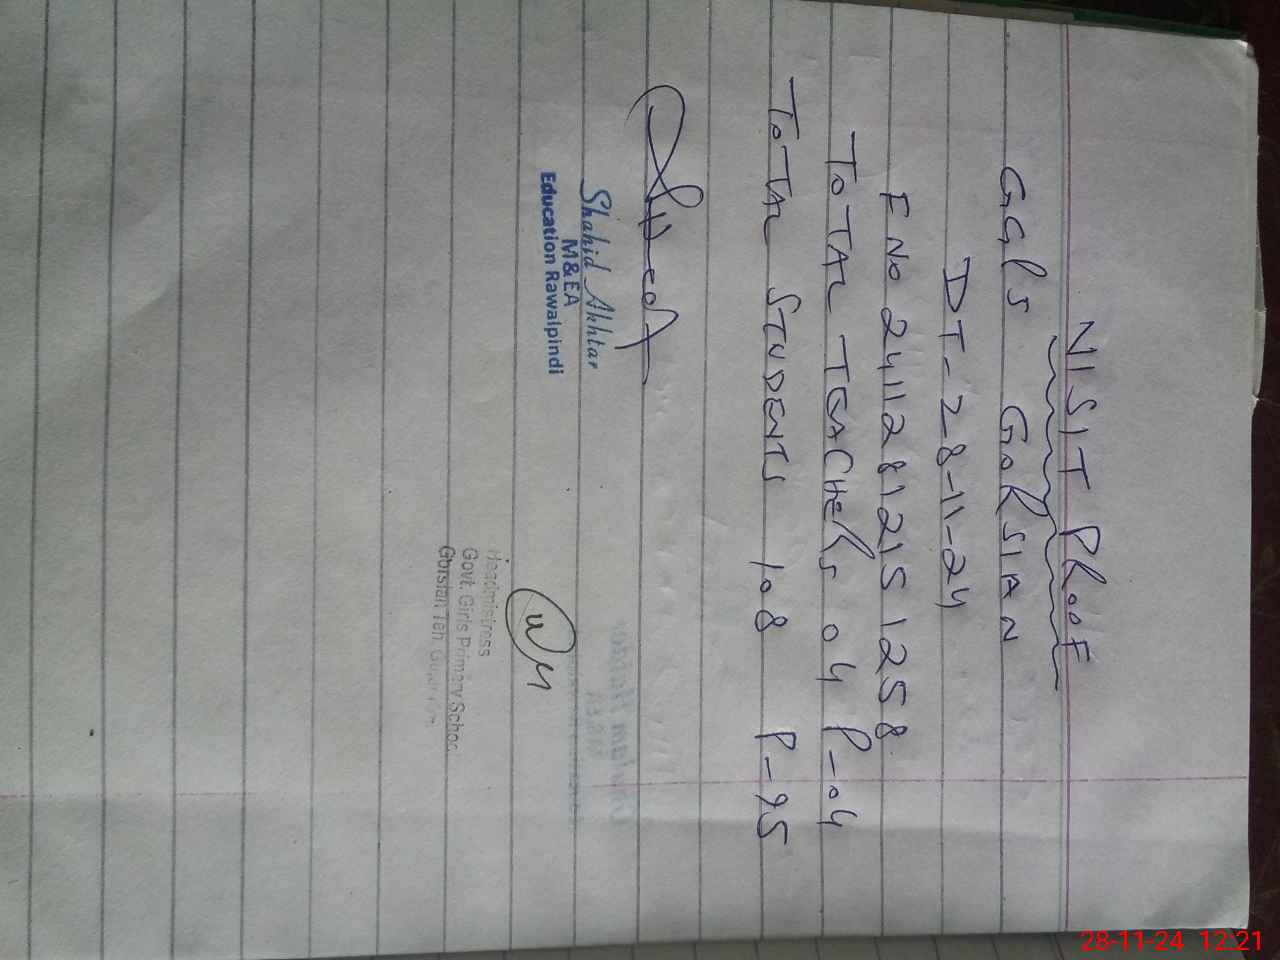 VISIT PROOF
GGPS GORSIAN
DT-28-11-24
E NO 2411281215 1258
TOTAL TEACHERS 04 P-04
TOTAL STUDENTS 108 P-95
Shahid Akhtar
M&EA
Education Rawalpindi
Headmistress
Govt. Girls Primary School
Gorsian Teh.
28-11-24 12:21